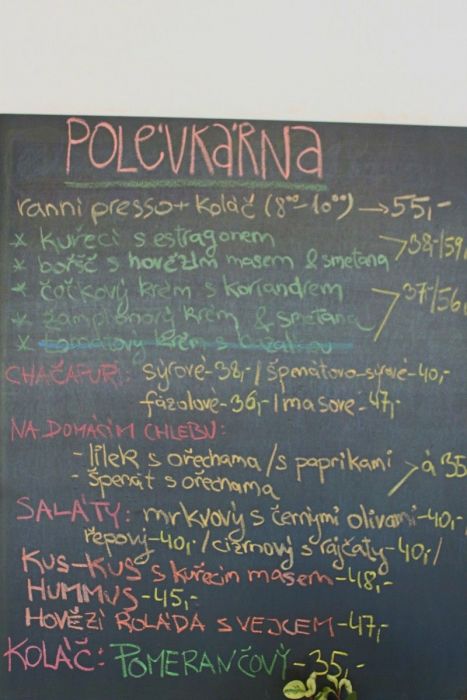 POLÉVKÁRNA
ranní presso + koláč (8⁰⁰-10⁰⁰) → 55,-
* kuřecí s estragonem
* boršč s hovězím masem & smetana 38,-/59,
* čočkový krém s koriandrem
* žampionový krém & smetana 37,-/56,
* tomatový krém s bazalkou
CHAČAPURI: sýrové - 38,- / špenátovo-sýrové - 40,-
fazolové - 36,- / masové - 47,-
NA DOMÁCÍM CHLEBU:
- lilek s ořechama / s paprikami
- špenát s ořechama á 35
SALÁTY: mrkvový s černými olivami - 40,-
řepový - 40,- / cizrnový s rajčaty - 40,- /
KUS-KUS s kuřecím masem - 48,-
HUMMUS - 45,-
HOVĚZÍ ROLÁDA S VEJCEM - 47,-
KOLÁČ: POMERANČOVÝ - 35,-